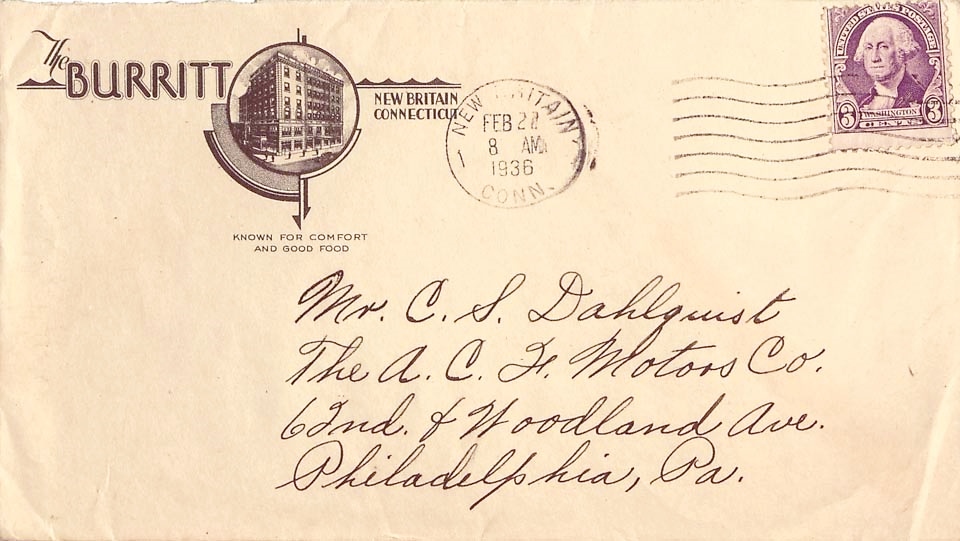 The
BURRITT
NEW BRITAIN
CONNECTICUT
KNOWN FOR COMFORT
AND GOOD FOOD
NEW BRITAIN
FEB
8 AM
1936
CONN.
1
UNITED STATES POSTAGE
3 WASHINGTON 3
CENTS
Mr. C. S. Dahlquist
The A. C. F. Motors Co.
62nd. & Woodland Ave.
Philadelphia, Pa.